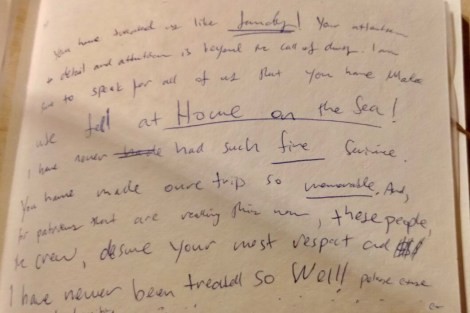 You have treated us like family! Your attention
to detail and attention is beyond the call of duty. I am
to speak for all of us that you have made
us fell at Home on the Sea!
I have never had such fine Service.
You have made oure trip so memorable. And,
for patrons that are reading this now, these people,
the crew, desurve your most respect and
I have never been treated so Well!